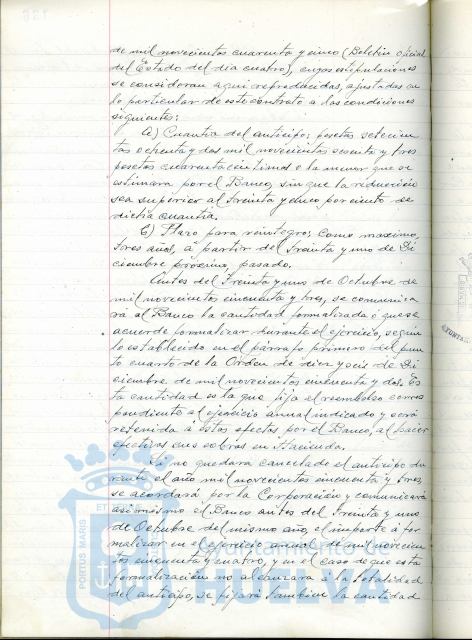 de mil novecientos cuarenta y cinco (Boletín oficial
del Estado del día cuatro), cuyas estipulaciones
se consideran aquí reproducidas, ajustadas en
lo particular de este contrato a las condiciones
siguientes:
a) Cuantía del anticipo; pesetas setecien
tas ochenta y dos mil novecientos sesenta y tres
pesetas cuarenta céntimos o la menor que se
estimara por el Banco, sin que la reducción
sea superior al treinta y cinco por ciento de
dicha cuantía.
b) Plazo para reintegro; como maximo,
tres años, a partir del treinta y uno de Di
ciembre próximo, pasado.
Antes del treinta y uno de Octubre de
mil novecientos cincuenta y tres, se comunica
rá al Banco la cantidad formalizada ó que se
acuerde formalizar durante el ejercicio, según
lo establecido en el párrafo primero del pun
to cuarto de la Orden de diez y seis de Di
ciembre de mil novecientos cincuenta y dos. Es
ta cantidad es la que fija el reembolso corres
pondiente al ejercicio anual indicado y será
referida á estos efectos por el Banco, al hacer
efectivos sus cobros en Hacienda.
Si no quedara cancelado el anticipo du
rante el año mil novecientos cincuenta y tres,
se acordará por la Corporación y comunicará
asimismo el Banco antes del treinta y uno
de Octubre del mismo año, el importe á for
malizar en el ejercicio anual de mil novecien
tos cincuenta y cuatro, y en el caso de que esta
formalización no alcanzara a la totalidad
del anticipo, se fijará también la cantidad
PORTUS MARIS
ET
Ayuntamiento de
HUELVA